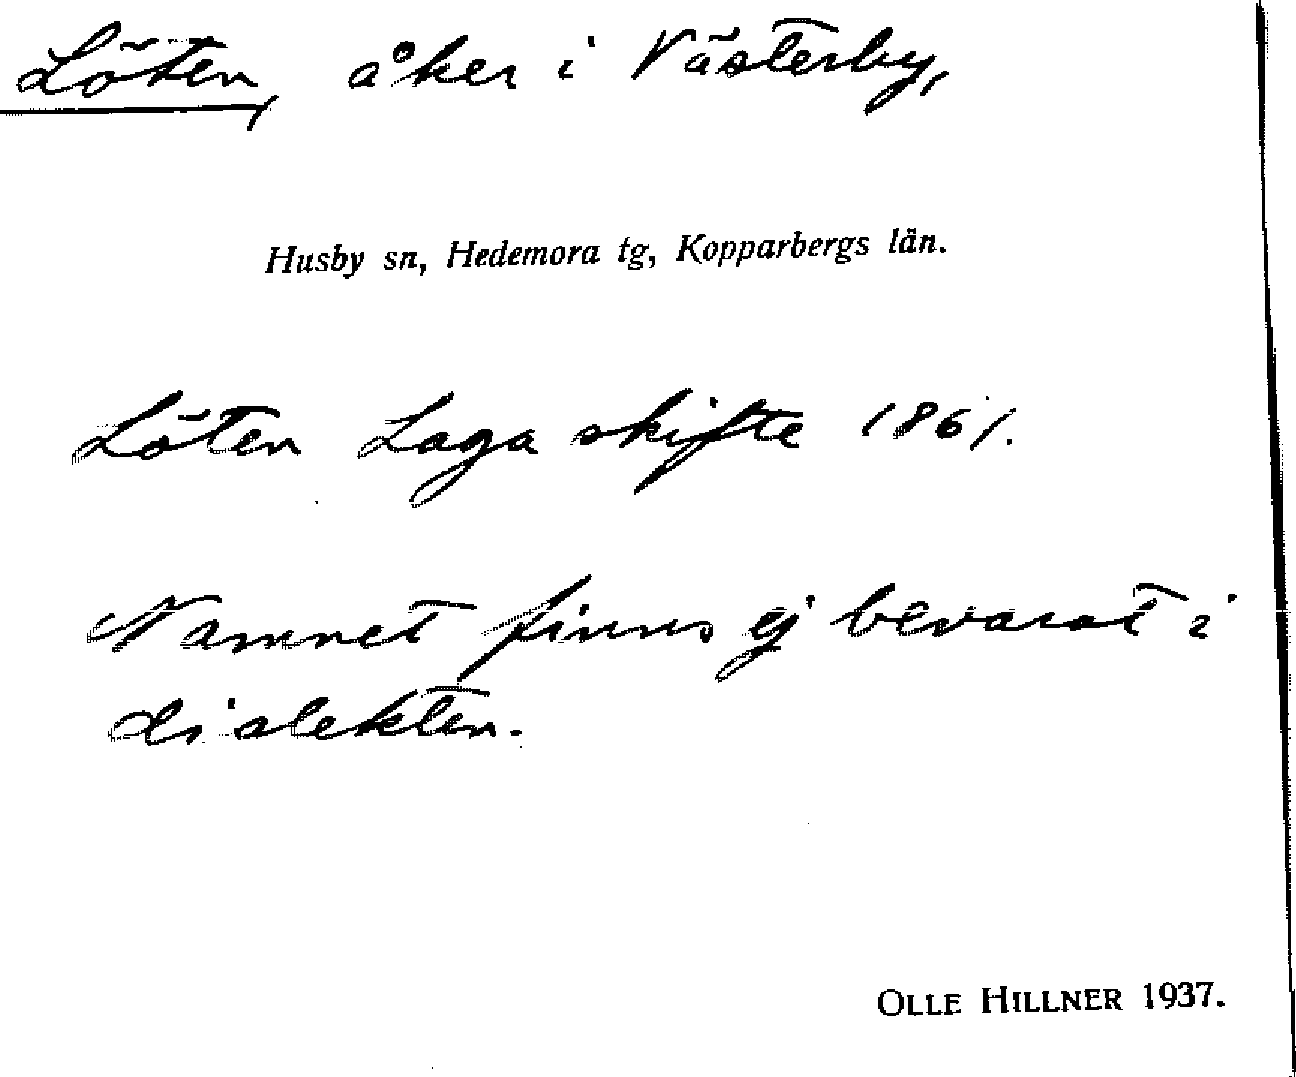 Löten, åker i Västerby,
Husby sn, Hedemora tg, Kopparbergs län.
Löten Laga skifte 1861.
Namnet finns ej bevarat i
dialekten.
OLLE HILLNER 1937.